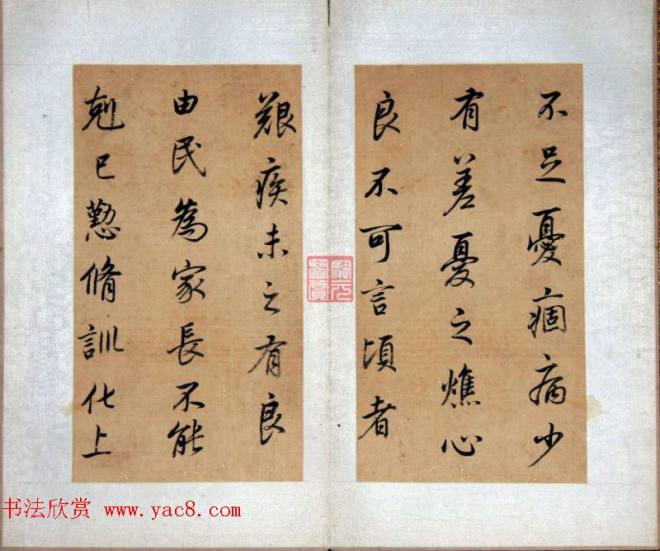 不足憂㾌病少
有差憂之燋心
良不可言頃者
艱疾未之有良
由民為家長不能
尅己懃脩訓化上
书法欣赏 www.yac8.com